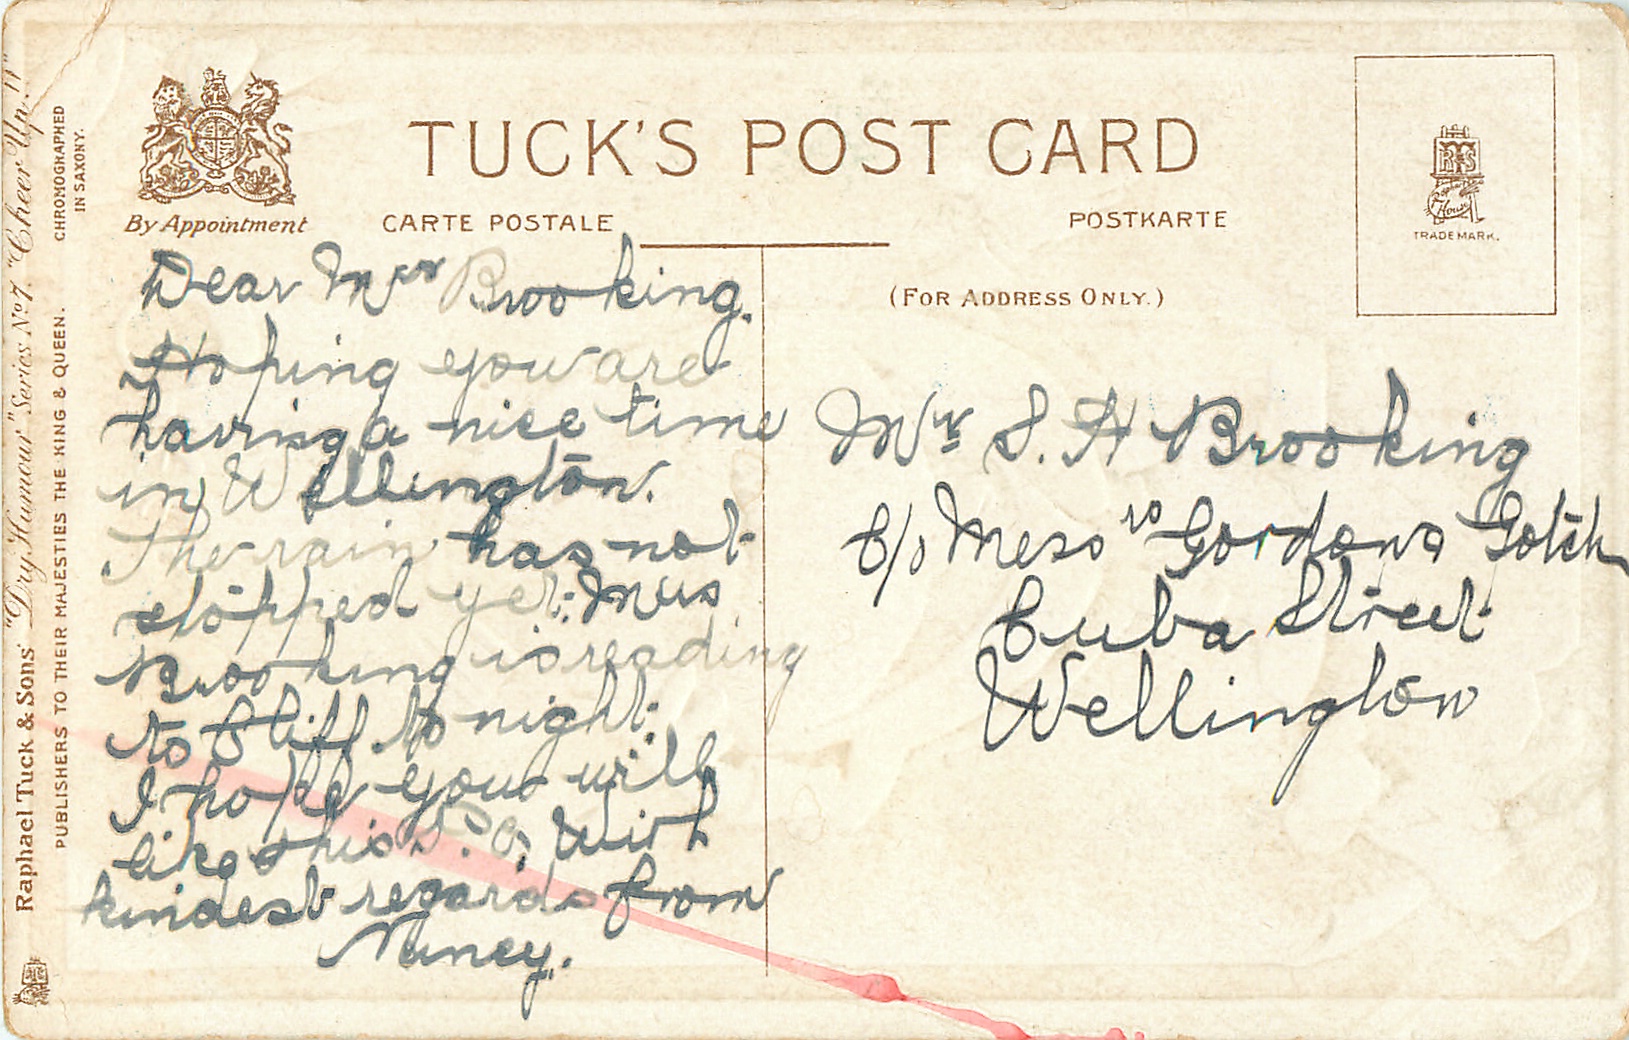 TUCK'S POST CARD
By Appointment
CARTE POSTALE
POSTKARTE
(FOR ADDRESS ONLY.)
TRADE MARK.
Raphael Tuck & Sons' "Dry Humour" Series No 7. "Cheer Up!!"
CHROMOGRAPHED
IN SAXONY.
PUBLISHERS TO THEIR MAJESTIES THE KING & QUEEN.
Dear Mrs Brooking.
Hoping you are
having a nice time
in Wellington.
The rain has not
stopped yet. Miss
Brooking is reading
to Cliff to night.
I hope you will
like this P.C. With
kindest regards from
Nancy.
Mrs S. A Brooking
C/o Messrs Gordons Gotch
Cuba Street
Wellington